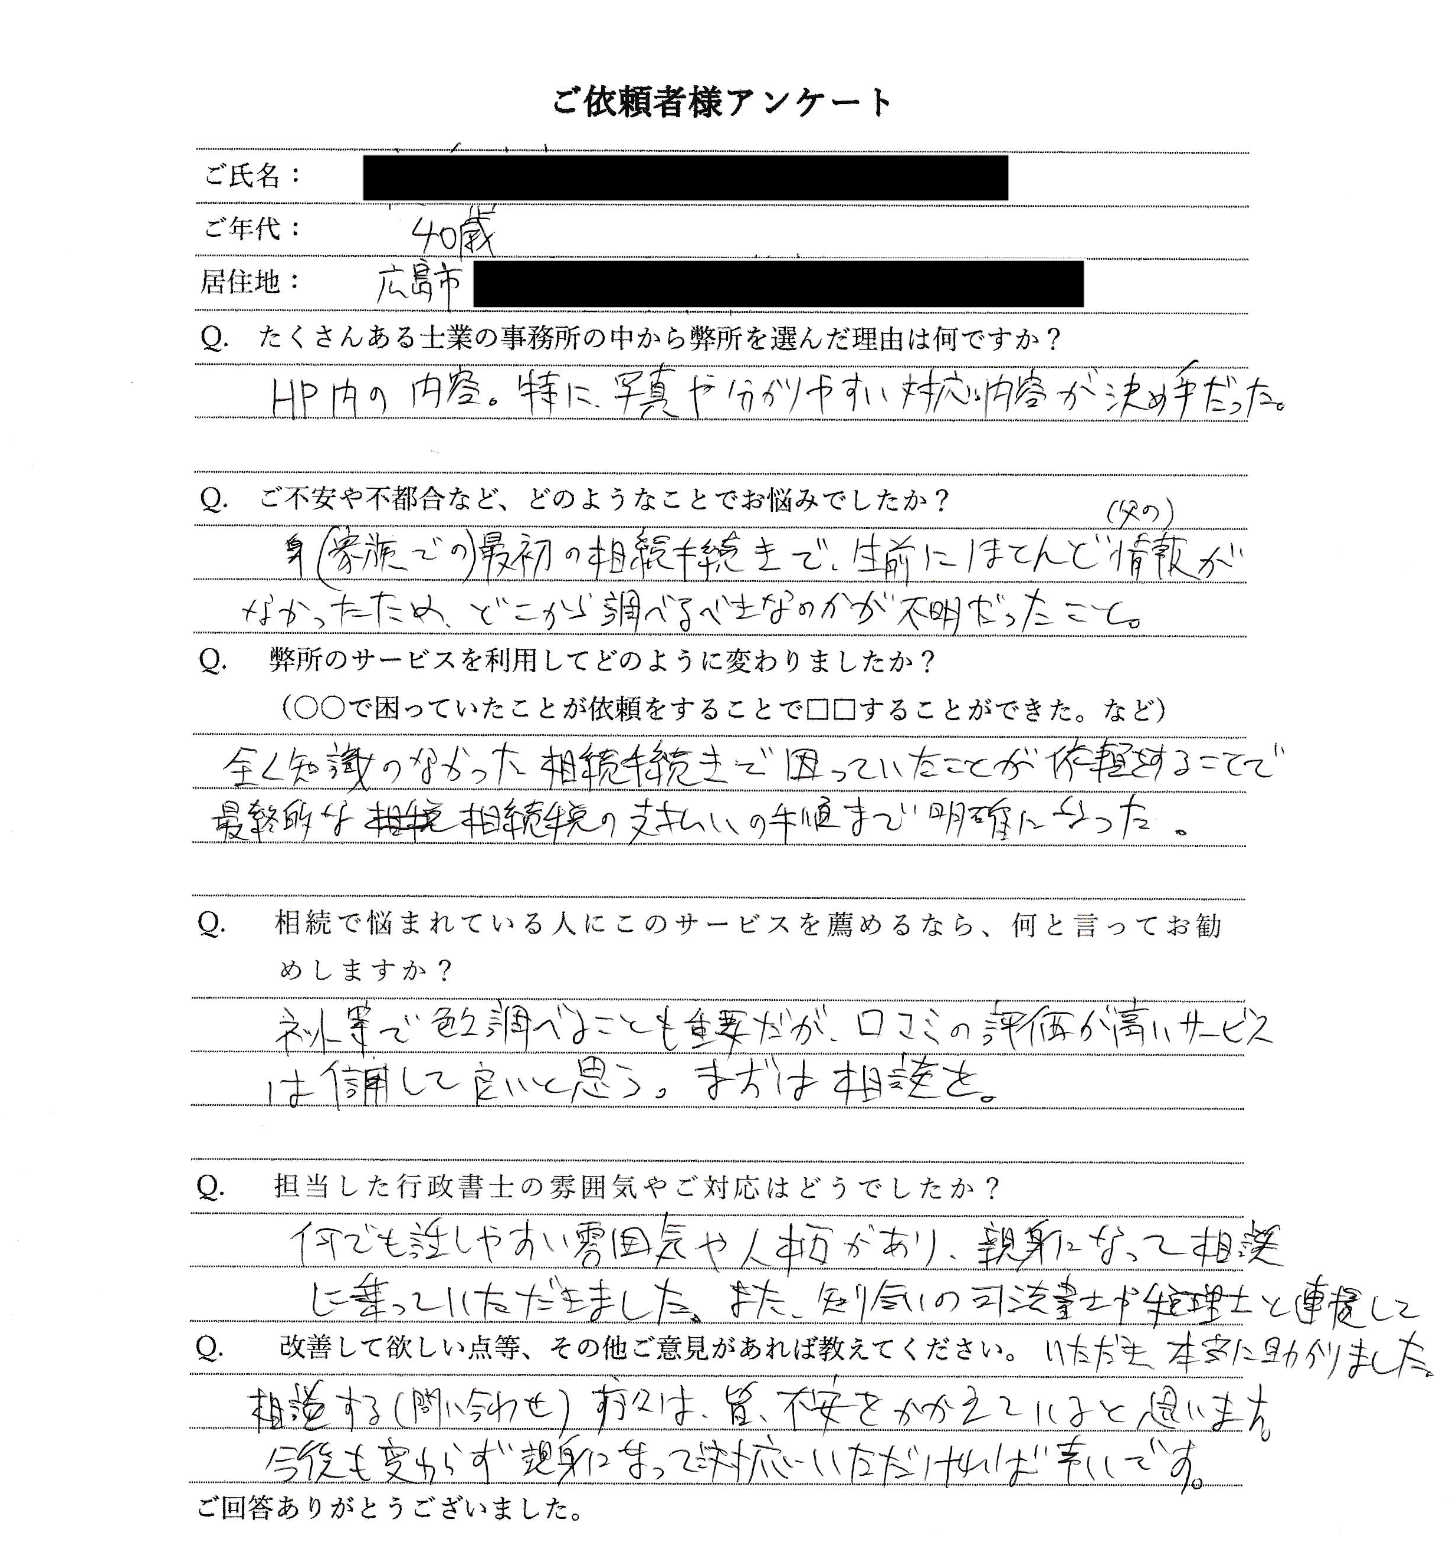 ご依頼者様アンケート
ご氏名：
ご年代： 40歳
居住地： 広島市
Q. たくさんある士業の事務所の中から弊所を選んだ理由は何ですか？
HP内の内容。特に、写真や分かりやすい対応内容が決め手だった。
Q. ご不安や不都合など、どのようなことでお悩みでしたか？
(父の)
(家族での)最初の相続手続きで、生前にほとんど情報が
なかったため、どこから調べるべきなのかが不明だったこと。
Q. 弊所のサービスを利用してどのように変わりましたか？
（○○で困っていたことが依頼をすることで□□することができた。など）
全く知識のなかった相続手続きで困っていたことが依頼をすることで
最終的な相続税の支払いの手順まで明確になった。
Q. 相続で悩まれている人にこのサービスを薦めるなら、何と言ってお勧
めしますか？
ネット等で色々調べることも重要だが、口コミの評価が高いサービス
は信用して良いと思う。まずは相談を。
Q. 担当した行政書士の雰囲気やご対応はどうでしたか？
何でも話しやすい雰囲気や人柄があり、親身になって相談
に乗っていただきました。また、知り合いの司法書士や税理士と連携して
いただき、本当に助かりました。
Q. 改善して欲しい点等、その他ご意見があれば教えてください。
相談する(問い合わせ)方々は、皆、不安をかかえていると思います。
今後も変わらず親身になって対応いただければ幸いです。
ご回答ありがとうございました。